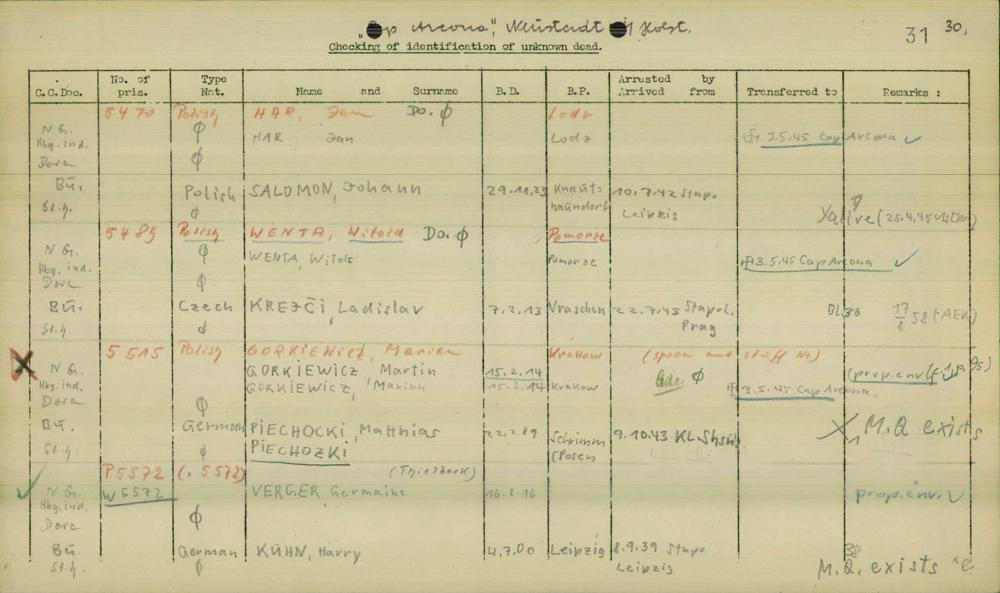 "Cap Arcona", Neustadt i/ Holst.
31 30,
Checking of identification of unknown dead.
C.C.Doc. No. of pris. Type Nat. Name and Surname B.D. B.P. Arrested by Arrived from Transferred to Remarks :
5470 Polish HAR, Jan Do. ϕ Lodz
N G. ϕ HAR Jan Lodz 3.5.45 Cap Arcona ✓
Hbg. ind.
Dora ϕ
Bū. Polish SALOMON, Johann 29.11.23 Knautz- 10.7.42 Stapo
St.g. ϕ haundorf Leipzig
5489 Polish WENTA, Witold Do. ϕ Pomorze
N G. ϕ WENTA, Witold Pomorze 3.5.45 Cap Arcona ✓
Hbg. ind.
Dora ϕ
Bū. Czech KREJČI, Ladislav 7.2.13 Vraschen 22.7.43 Stapol. 17/8 58 (-AEK)
St.g. ϕ Prag
5515 Polish GORKIEWICZ, Marian Krakow (spoon and stuff No)
N G. GORKIEWICZ, Martin 15.2.14 ϕ (prop.env.
Hbg. ind. GORKIEWICZ, Marian 15.2.14 Krakow 3.5.45 Cap Arcona.
Dora ϕ
Bū. German PIECHOCKI, Matthias 22.2.89 Schrimm 9.10.43 KL. M.Q exists
St.g. ϕ PIECHOZKI (Posen
P5572 (. 5572) (Thielbeck)
✓ N G. W5572 VERGER Germaine 16.2.16 prop.env. ✓
Hbg. ind.
Dora ϕ
Bū. German KÜHN, Harry 4.7.00 Leipzig 8.9.39 Stapo 38
St.g. ϕ Leipzig M.Q. exists